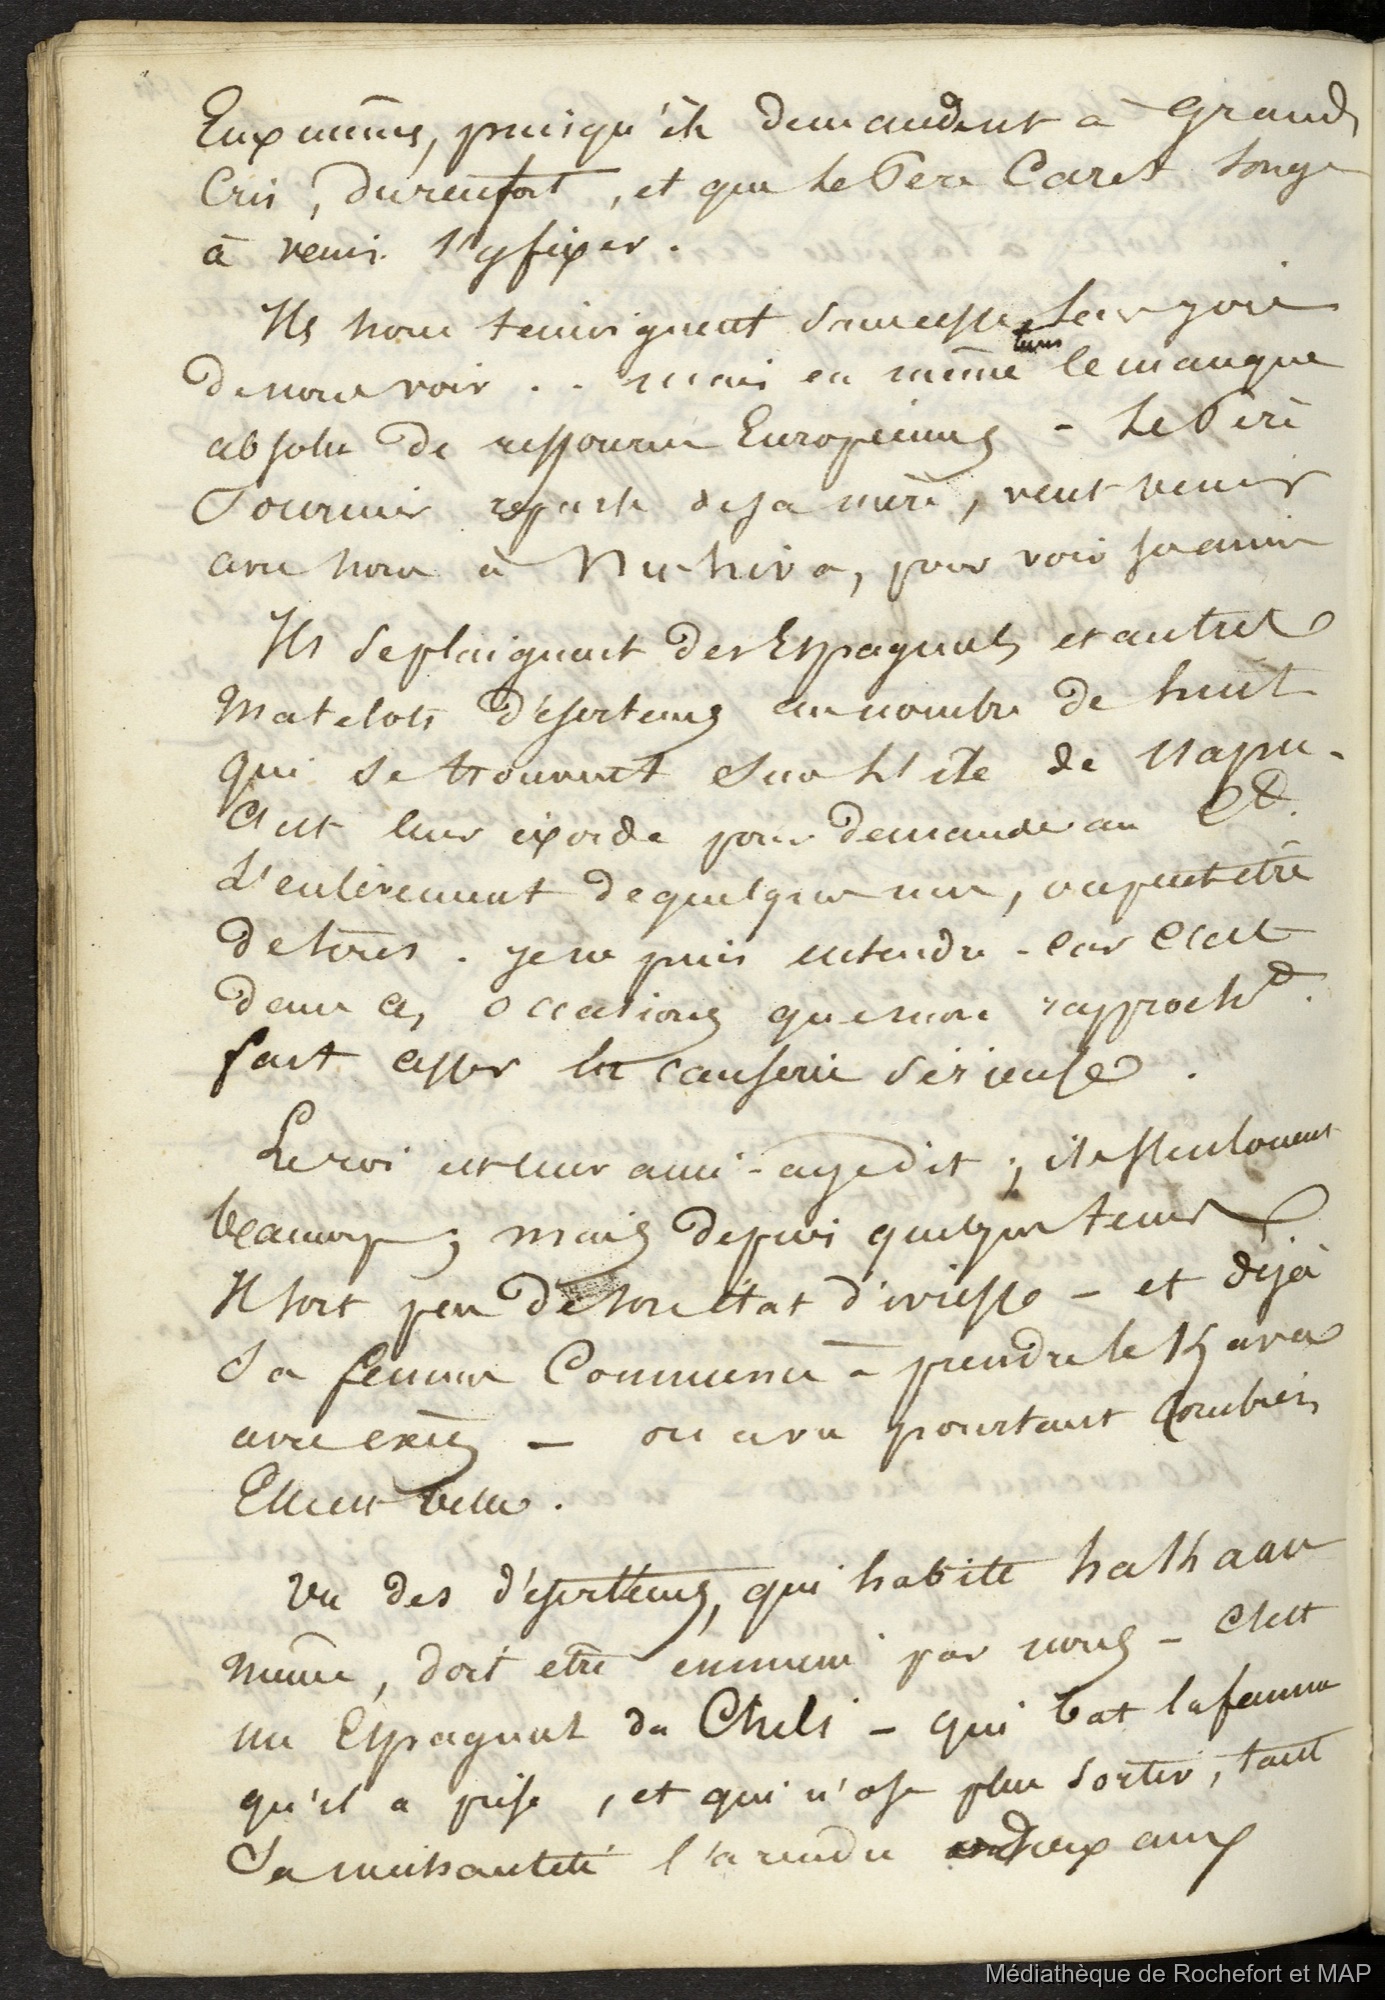 Eux mêmes, puisqu'ils demandent à grands
Cris, du renfort, et que le Père Caret songe
à venir s'y fixer.
Ils nous temoignent sans cesse leur joie
de nous voir . . mais en même tems le manque
absolu de ressources Européennes - Le Père
Fournier reparle de sa mère, veut venir
avec nous à Nu-hiva, pour voir
Ils se plaignent des Espagnols et autres
Matelots déserteurs au nombre de huit
qui se trouvent sur l'île de Uapu -
C'est leur exorde pour demander au Ct.
L'enlèvement de quelques uns, ou peut être
de tous. je ne puis entendre - car c'est
dans ces occasions que mon rapproch.t
fait cesser la causerie sérieuse.
Le roi est leur ami - ai-je dit ; ils s'en louent
beaucoup ; mais depuis quelque tems
Il sort peu de son état d'ivresse - et déjà
Sa femme Commence à prendre le Kava
avec excès - on a vu pourtant Combien
Elle est belle.
Un des déserteurs, qui habite hakahau
même, doit être emmené par nous - C'est
un Espagnol du Chili - qui bat la femme
qu'il a prise, et qui n'ose plus sortir, tant
Sa méchanceté l'a rendu odieux aux
Médiathèque de Rochefort et MAP